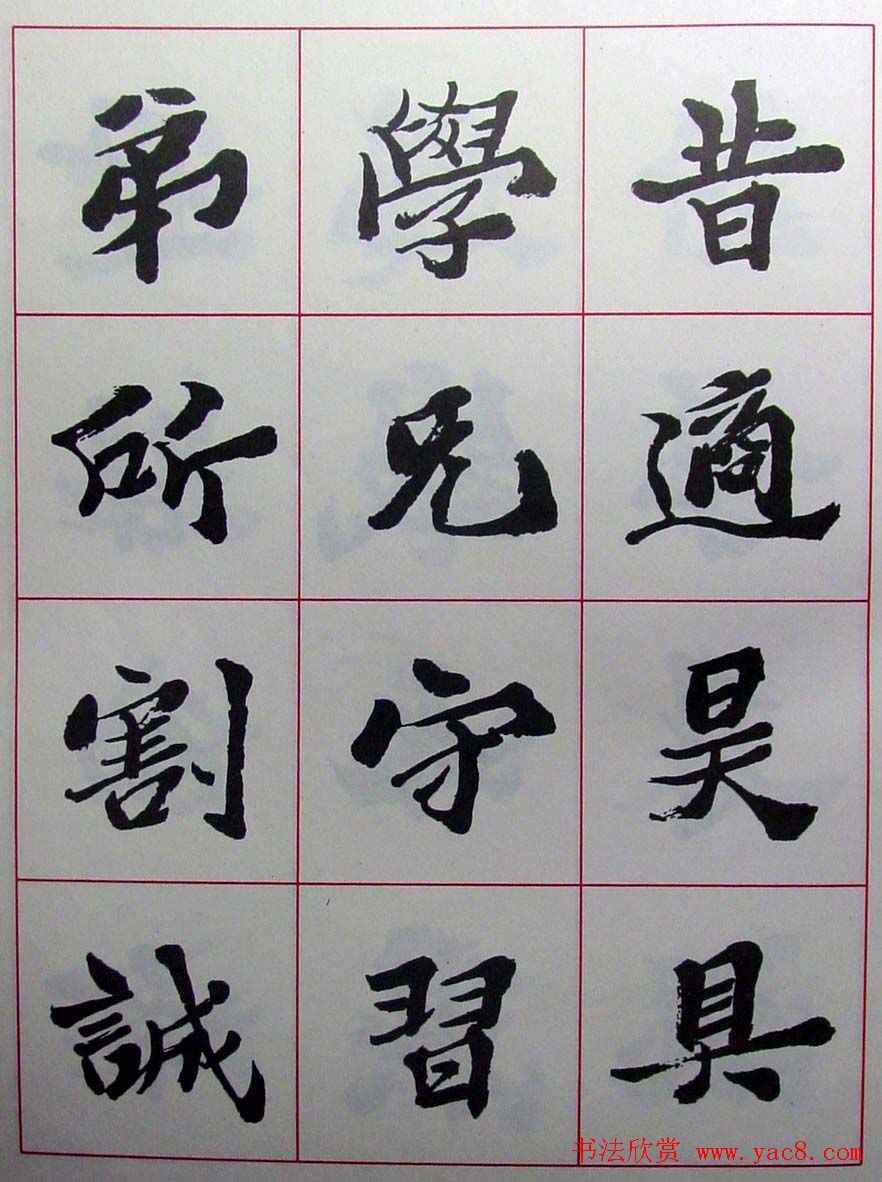 昔適昊具
學兄守習
弟所割誠
书法欣赏 www.yac8.com